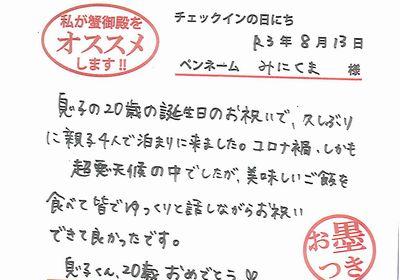 私が蟹御殿を
オススメ
します!!
チェックインの日にち
R3年8月13日
ペンネーム みにくま 様
息子の20歳の誕生日のお祝いで、久しぶり
に親子4人で泊まりに来ました。コロナ禍、しかも
超悪天候の中でしたが、美味しいご飯を
食べて皆でゆっくりと話しながらお祝い
できて良かったです。
息子くん、20歳おめでとう♡
お墨
つき